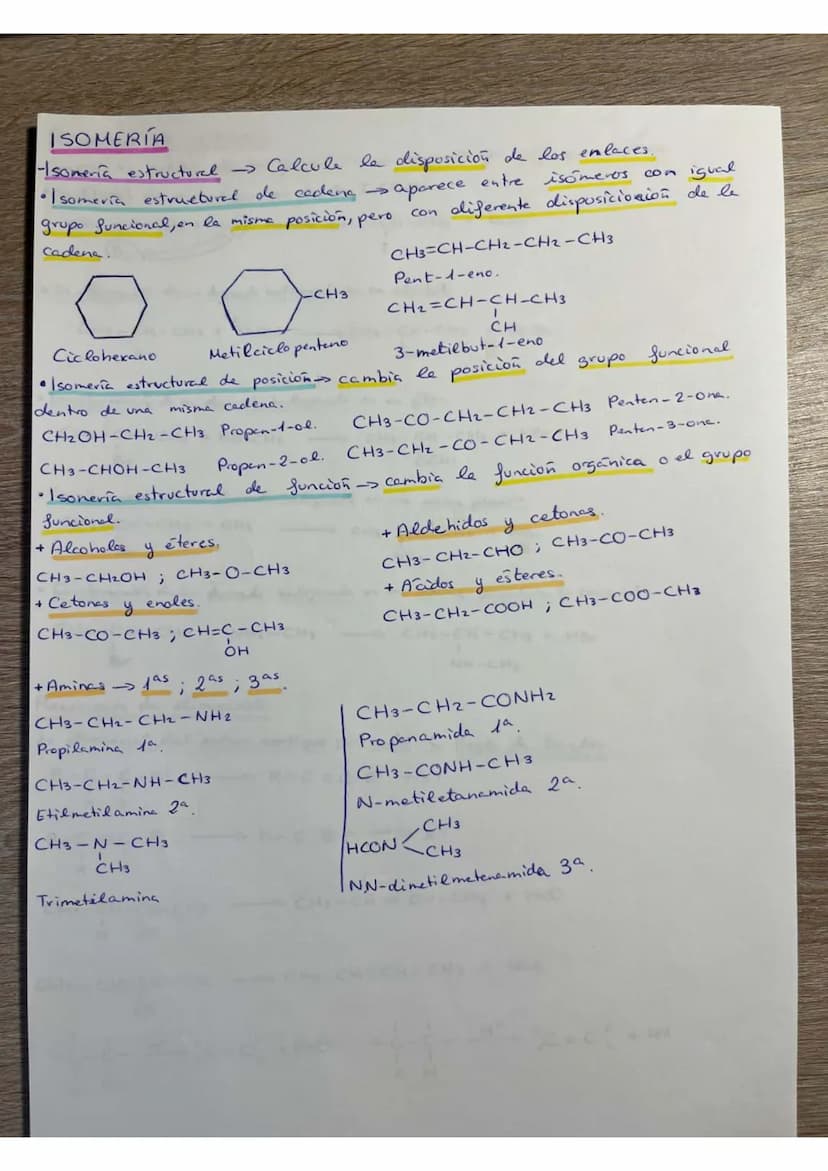 ISOMERÍA
-Isomería estructural → Calcula la disposición de los enlaces.
• Isomería estructural de cadena → aparece entre isómeros con igual
grupo funcional, en la misma posición, pero con diferente disposicioición de la
cadena.
CH3=CH-CH2-CH2-CH3
Pent-1-eno.
-CH3
CH2=CH-CH-CH3
CH
Ciclohexano
Metilciclopentano
3-metilbut-1-eno
• Isomería estructural de posición → cambia la posición del grupo funcional
dentro de una misma cadena.
CH2OH-CH2-CH3 Propan-1-ol. CH3-CO-CH2-CH2-CH3 Pentan-2-ona.
CH3-CHOH-CH3 Propan-2-ol. CH3-CH2-CO-CH2-CH3 Pentan-3-ona.
• Isomería estructural de función → cambia la función orgánica o el grupo
funcional.
+ Alcoholes y éteres.
CH3-CH2OH ; CH3-O-CH3
+ Cetonas y enoles.
CH3-CO-CH3 ; CH=C-CH3
OH
+ Aldehidos y cetonas.
CH3-CH2-CHO ; CH3-CO-CH3
+ Ácidos y ésteres.
CH3-CH2-COOH ; CH3-COO-CH3
+ Aminas → 1as ; 2as ; 3as.
CH3-CH2-CH2-NH2
Propilamina 1a.
CH3-CH2-NH-CH3
Etilmetilamina 2a.
CH3-N-CH3
CH3
Trimetilamina
CH3-CH2-CONH2
Propanamida 1a.
CH3-CONH-CH3
N-metiletanamida 2a.
CH3
HCON
CH3
NN-dimetilmetanamida 3a.